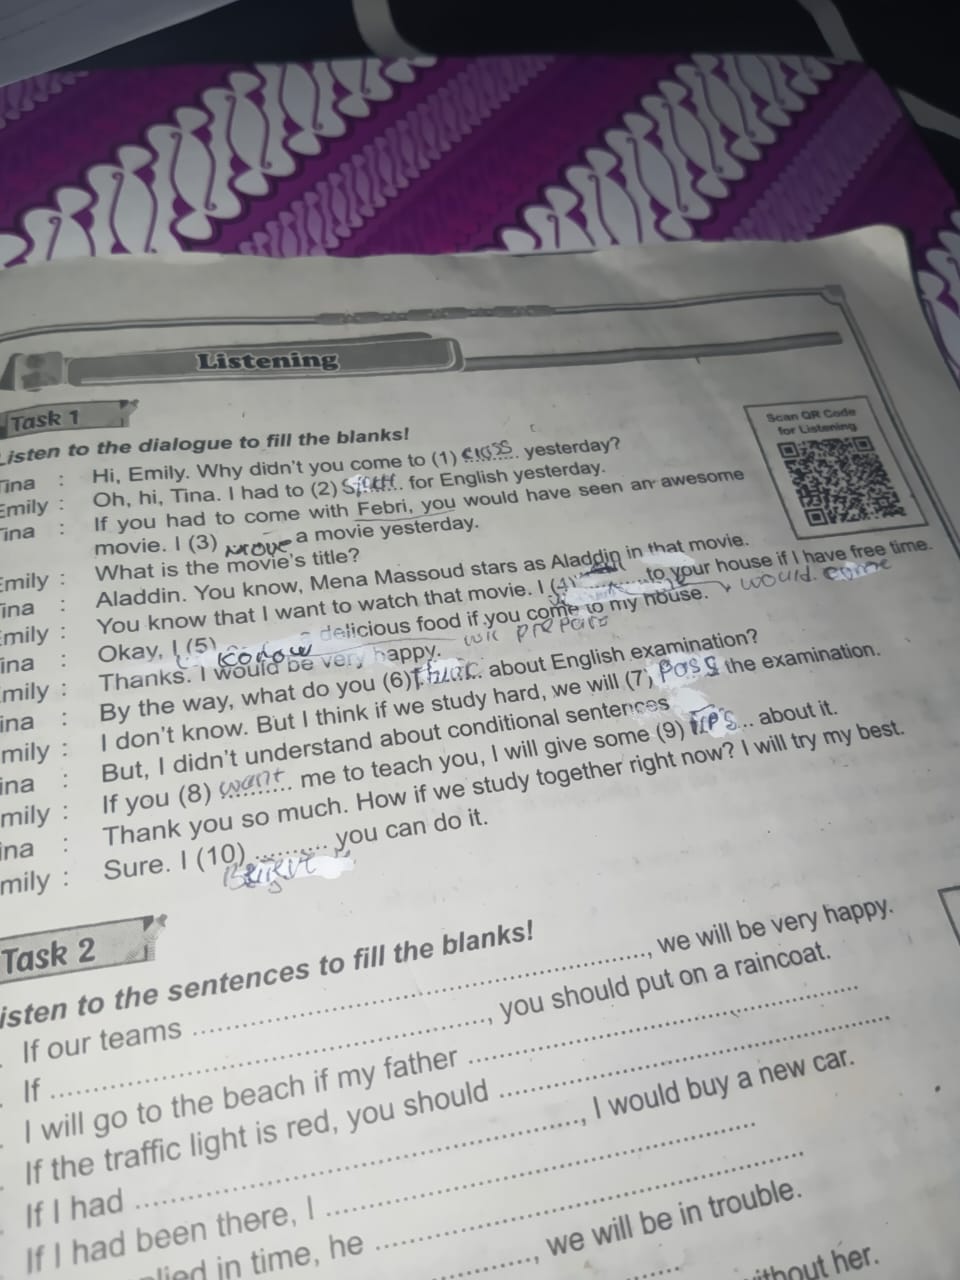 Listening
Task 1
Listen to the dialogue to fill the blanks!
Scan QR Code
for Listening
Tina : Hi, Emily. Why didn't you come to (1) class yesterday?
Emily : Oh, hi, Tina. I had to (2) ........ for English yesterday.
Tina : If you had to come with Febri, you would have seen an awesome
movie. I (3) a movie yesterday.
Emily : What is the movie's title?
ina : Aladdin. You know, Mena Massoud stars as Aladdin in that movie.
Emily : You know that I want to watch that movie. I (4) to your house if I have free time.
would come
ina : Okay, I (5) delicious food if you come to my house.
will prepare
mily : Thanks. I would be very happy.
ina : By the way, what do you (6) think about English examination?
mily : I don't know. But I think if we study hard, we will (7) pass the examination.
ina : But, I didn't understand about conditional sentences
mily : If you (8) want me to teach you, I will give some (9) tips about it.
ina : Thank you so much. How if we study together right now? I will try my best.
mily : Sure. I (10) .......... you can do it.
Task 2
isten to the sentences to fill the blanks!
If our teams ........................................, we will be very happy.
If ........................................, you should put on a raincoat.
I will go to the beach if my father ........................................
If the traffic light is red, you should ........................................
If I had ........................................, I would buy a new car.
If I had been there, I ........................................
lied in time, he ........................................
........................................, we will be in trouble.
without her.